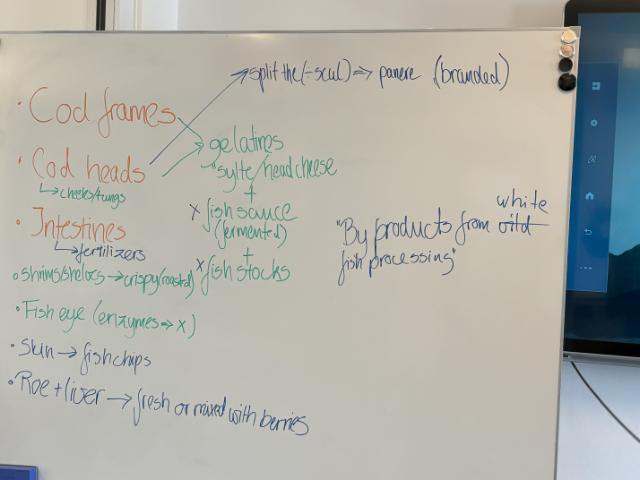 split the (÷scul) => panere (branded)
• Cod frames
gelatines
"sylte/headcheese
• Cod heads
↳ cheeks/tungs
+
x fish sauce
(fermented)
• Intestines
↳ fertilizers
+
x fish stocks
white
"By products from
fish processing"
→ crispy (roasted)
• Fish eye (enzymes => x)
• Skin → fish chips
• Roe + liver → fresh or mixed with berries